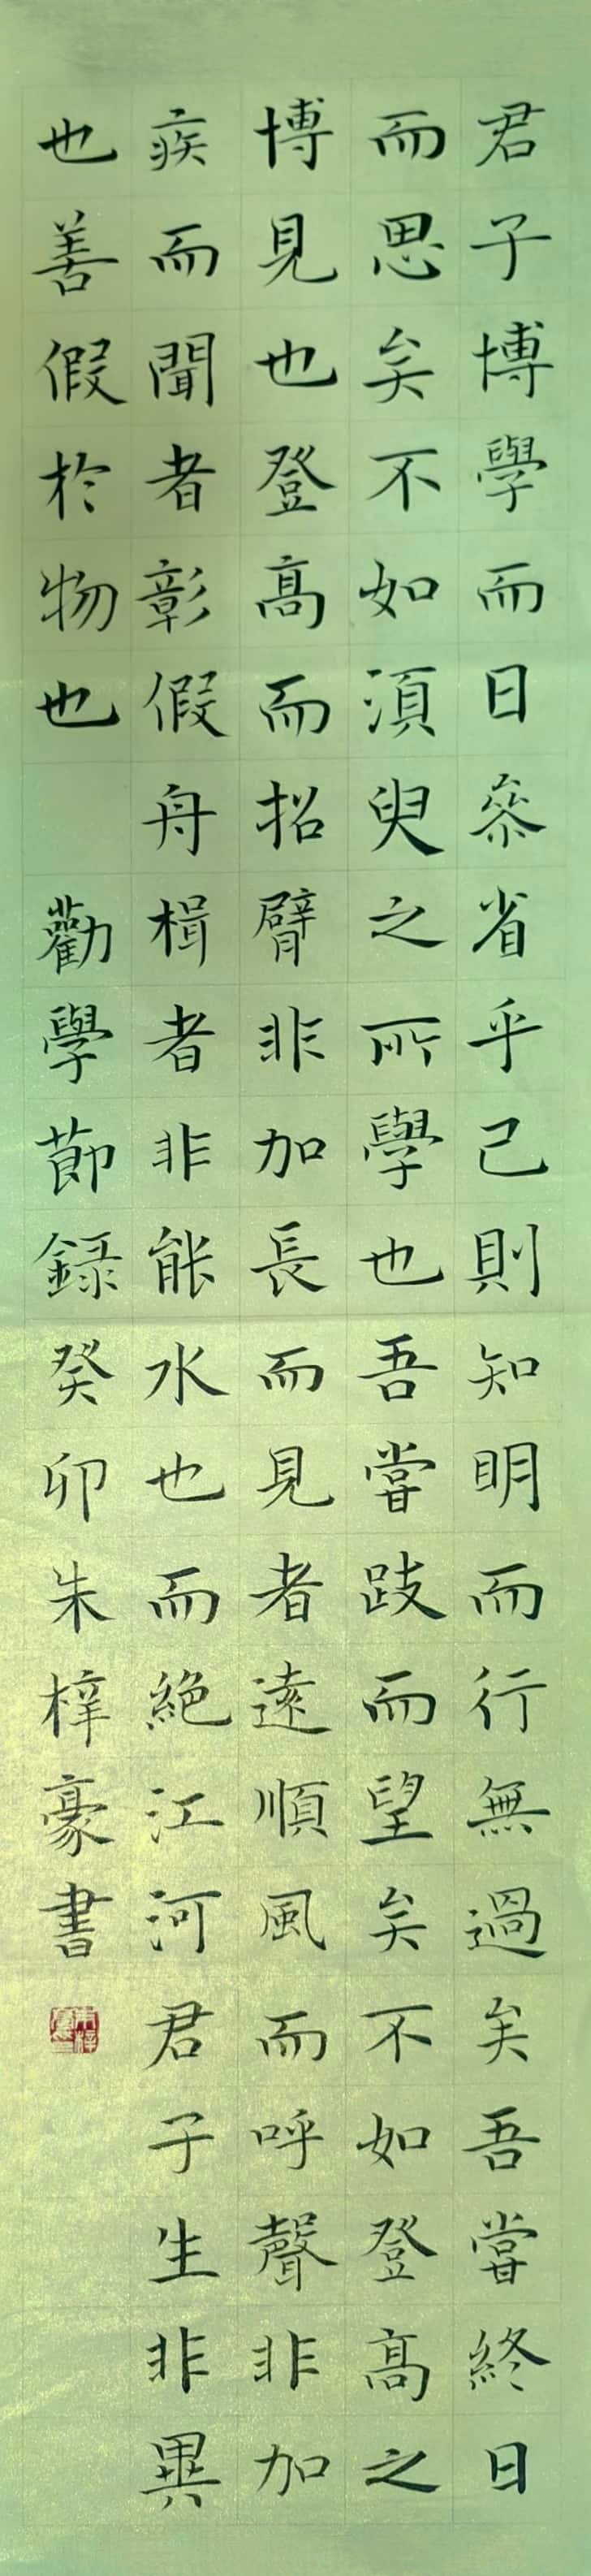 君子博學而日參省乎己則知明而行無過矣吾嘗終日
而思矣不如須臾之所學也吾嘗跂而望矣不如登高之
博見也登高而招臂非加長而見者遠順風而呼聲非加
疾而聞者彰假舟楫者非能水也而絕江河君子生非異
也善假於物也 勸學節録癸卯朱梓豪書